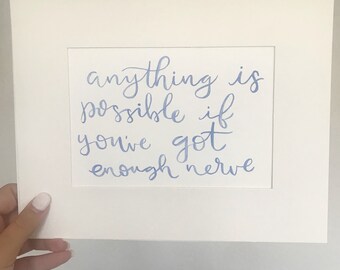 anything is
possible if
you've got
enough nerve